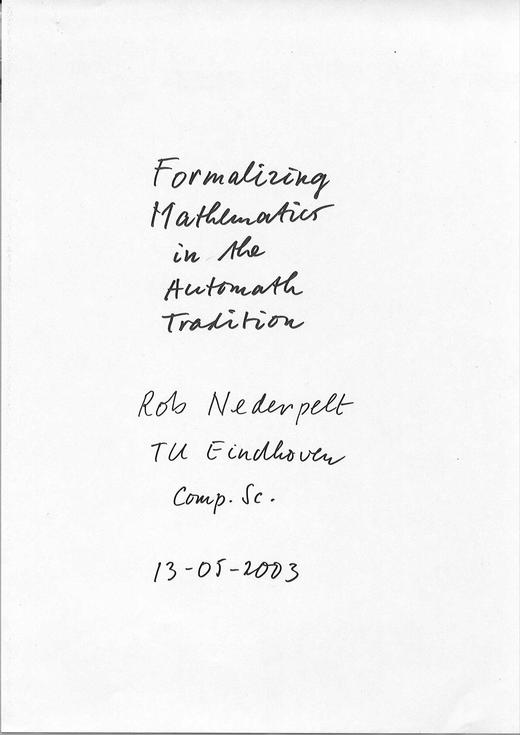 Formalizing
Mathematics
in the
Automath
Tradition
Rob Nederpelt
TU Eindhoven
Comp. Sc.
13-05-2003